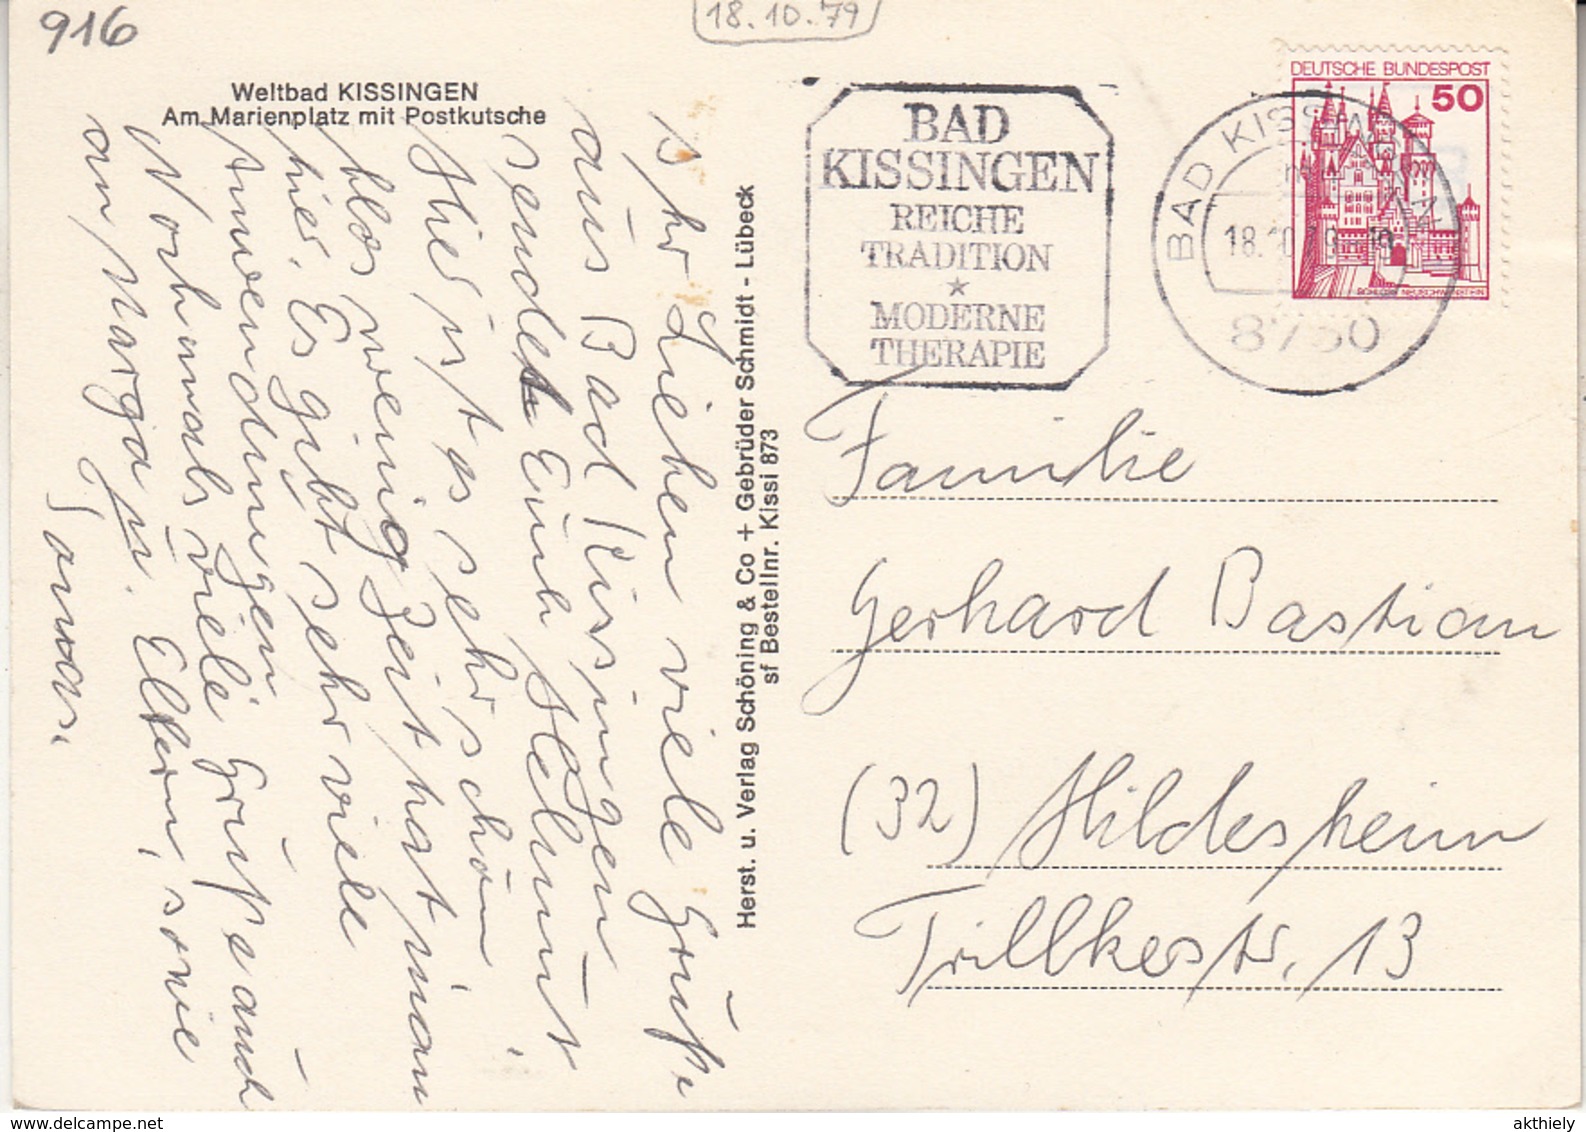 916
18.10.79
Weltbad KISSINGEN
Am Marienplatz mit Postkutsche
Ihr Lieben viele Grüße
aus Bad Kissingen
sendet Euch Helmut
Hier ist es sehr schön
blos wenig Zeit hat man
hier. Es gibt sehr viele
Anwendungen
Nochmals viele Grüße auch
an Marga u. Eltern, sowie
Herst. u. Verlag Schöning & Co + Gebrüder Schmidt - Lübeck
sf Bestellnr. Kissi 873
BAD
KISSINGEN
REICHE
TRADITION
★
MODERNE
THERAPIE
BAD KISSINGEN
18.10.79
8730
DEUTSCHE BUNDESPOST
50
SCHLOSS NEUSCHWANSTEIN
Familie
Gerhard Bastian
(32) Hildesheim
Trillkestr. 13
www.delcampe.net
akthiely